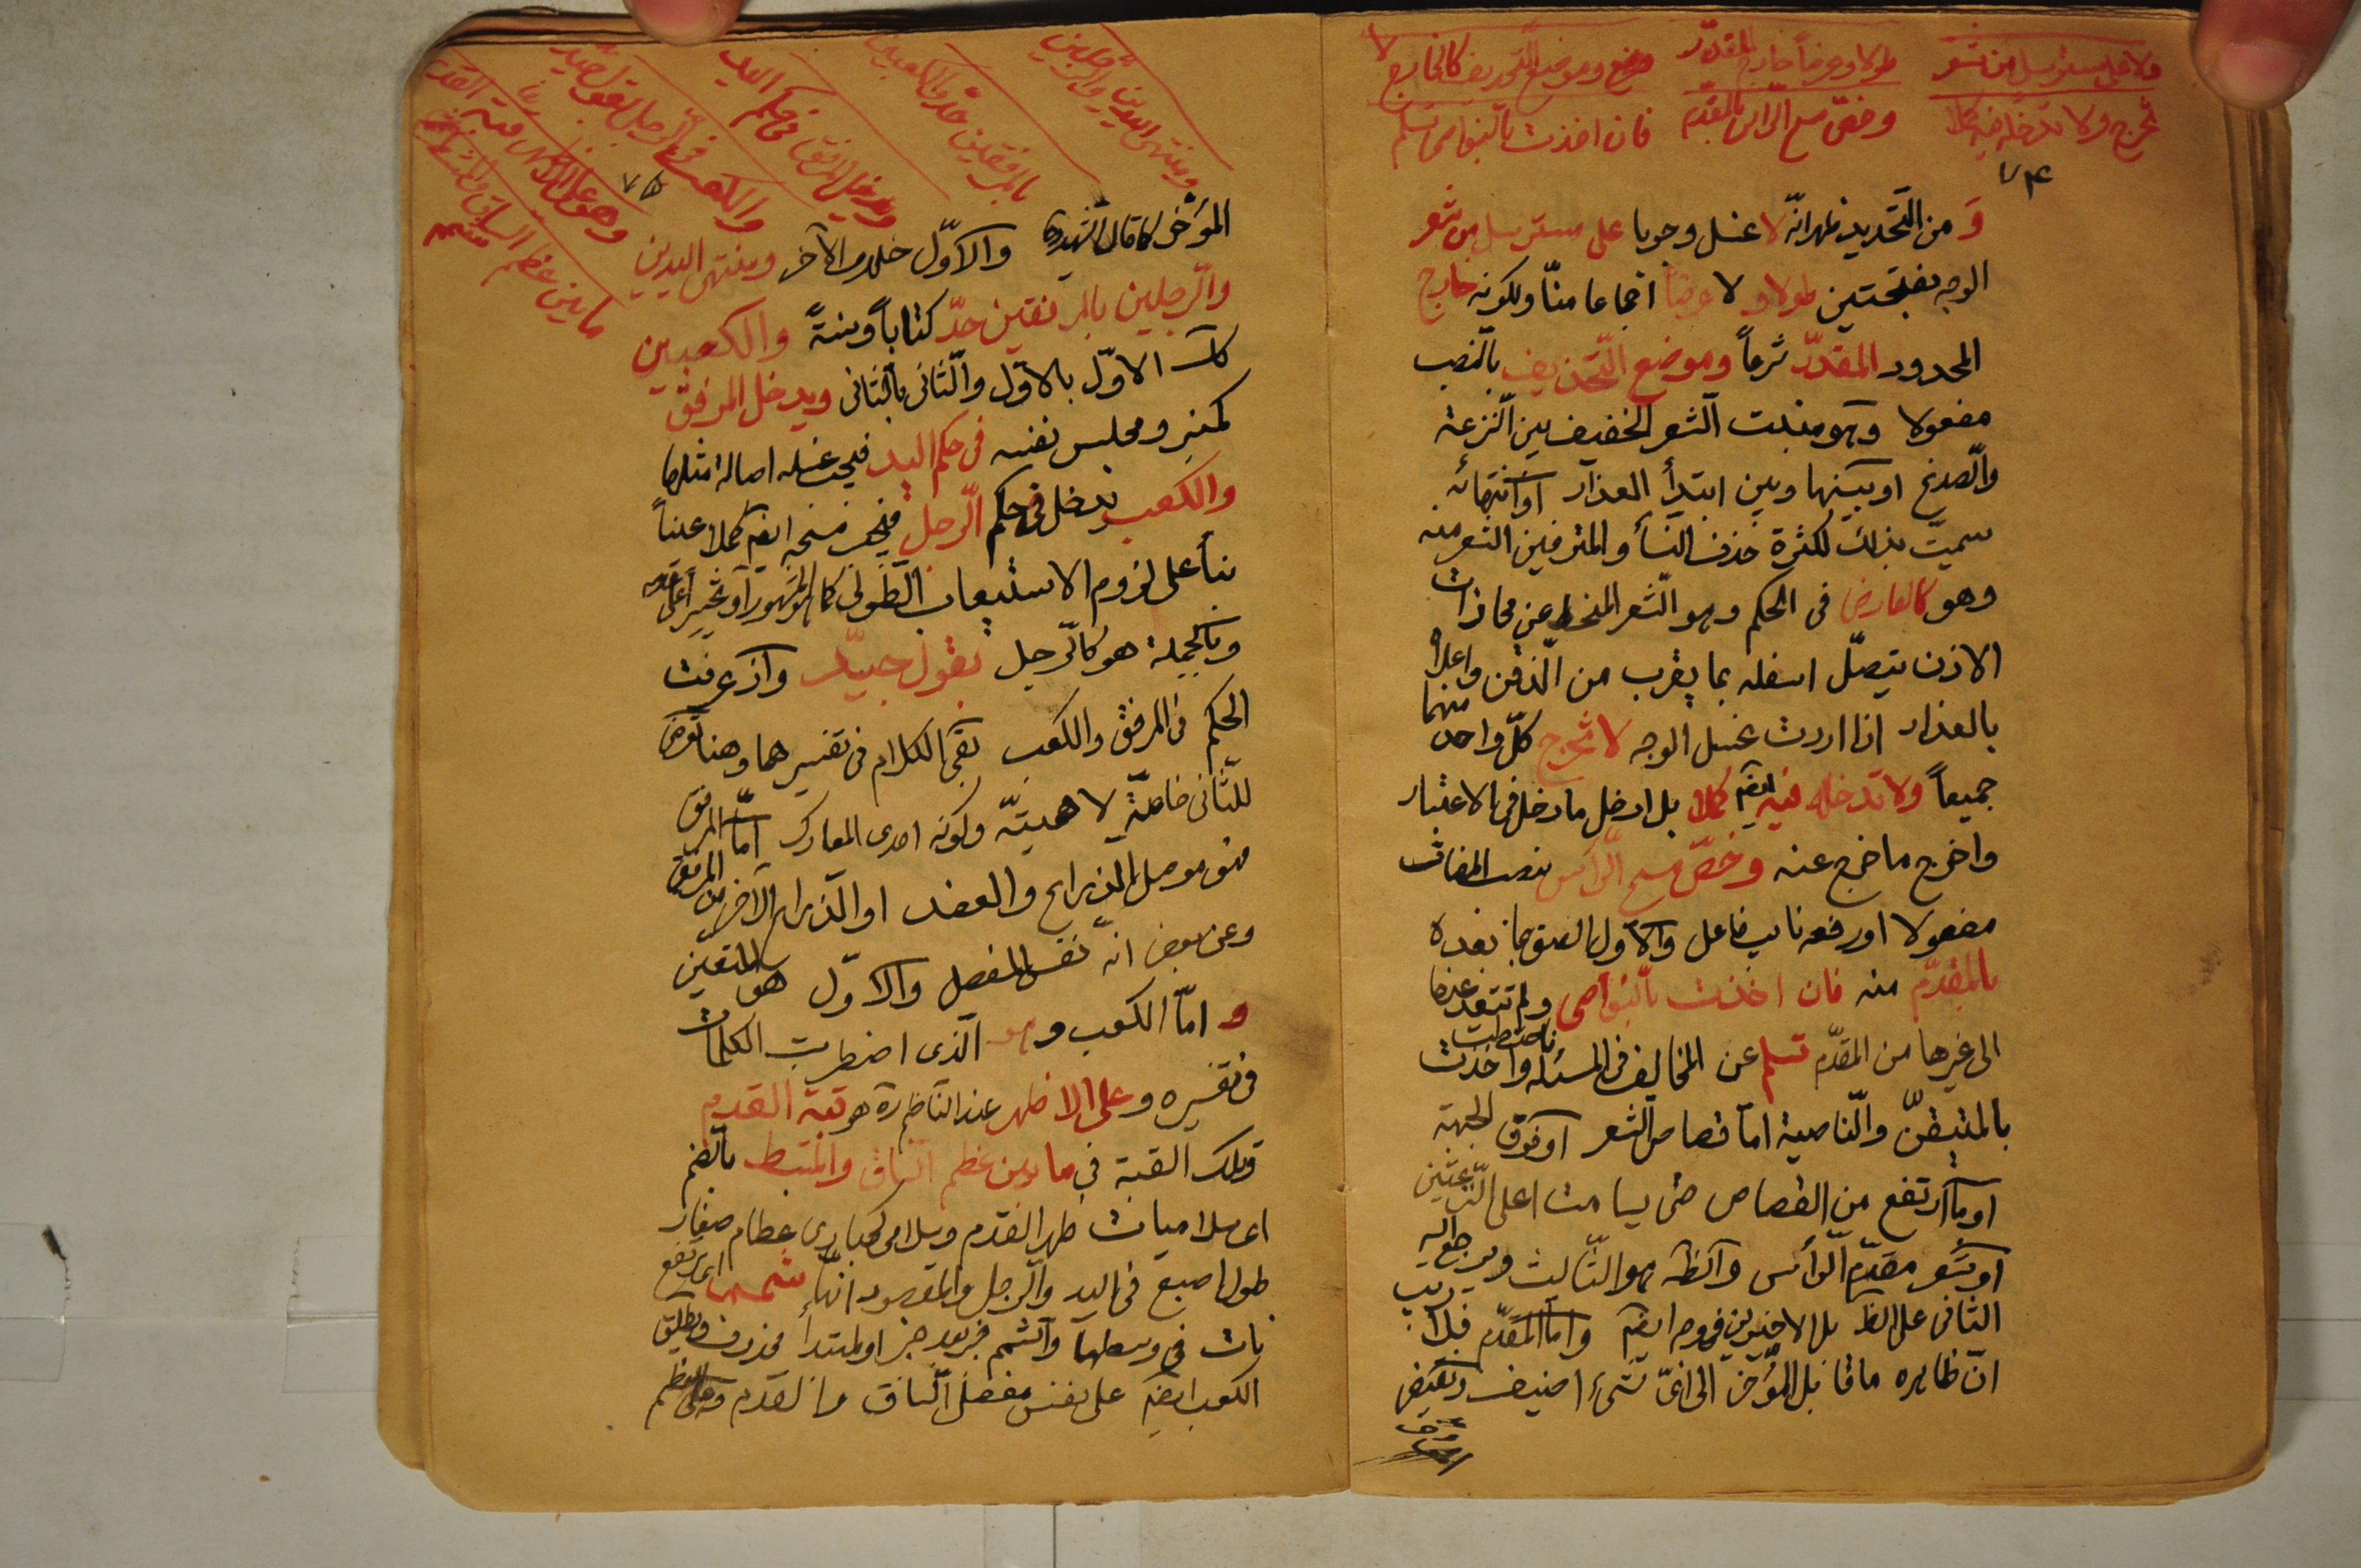 ولا على مسترسل من شعر طولا وعرضا خارج المقدّر
وموضع التحذيف كالعارض لا
تخرج ولا تدخله فيه كلا
وخصّ مسح الرّأس بالمقدّم فان اخذت بالنّواصى تسلم
٧٤
وَ من التّحديد ظهر انّه لا غسل وجوبا على مسترسل من شعر
الوجه بفتحتين طولا و لا عرضاً اجماعا منّا ولكونه خارج
المحدود المقدّر شرعاً وموضع التّحذيف بالنّصب
مفعولا وهو منبت الشعر الخفيف بين النّزعة
والصّدغ او بينها وبين ابتدأ العذار او انتهائه
سميّت بذلك لكثرة حذف النّسأ والمترفين الشعر منه
وهو كالعارض فى الحكم وهو الشّعر المنحط عن محاذات
الاذن يتصّل اسفله بما يقرب من الذّقن واعلاه
بالعذار اذا اردت غسل الوجه لا تخرج كلّ واحد منهما
جميعاً ولا تدخله فيه ايضا كملا بل ادخل ما دخل فى الاعتبار
واخرج ما خرج عنه وخصّ مسح الرّأس بنصب المضاف
مفعولا او رفعه نايب فاعل والاوّل
بالمقدّم منه فان اخذت بالنّواصى ولم تتعد عنها
الى غيرها من المقدّم تسلم عن المخالف فى المسئلة واخذت
بالمتيقّن والنّاصية امّا قصاص الشعر او فوق الجبهة
او ما ارتفع من القصاص حتى يسامت اعلى النّزعتين
او شعر مقدّم الرّأس والظّ هو الثّالث ويرجع اليه
الثانى على الظ بل الاخيرين فى وجه ايضا وامّا المقدّم فلا ريب
انّ ظاهره ما قابل المؤخّر الى اىّ شىء اضيف ونقيض
ومنتهى اليدين والرّجلين
بالمرفقين حدّ والكعبين
ويدخل المرفق فى حكم اليد
والكعب فى الرّجل بقول جيّد
وهو على الاظهر قبة القدم
ما بين عظم السّاق والمشط
٧٥
المؤخّر كما قال الشّهيد والاوّل خلاف الآخر ومنتهى اليدين
والرّجلين بالمرفقين حدّ كتاباً وسنةً والكعبين
الاوّل بالاوّل والثّانى بالثّانى ويدخل المرفق
كمنبر ومجلس نفسه فى حكم اليد فيجب غسله اصالة مثلها
والكعب يدخل فى حكم الرّجل فيجب مسحه ايضا كملا عيناً
بنأ على لزوم الاستيعاب الطّولى كما هو المشهور او تخييراً
وبالجملة هو كالرّجل بقول جيّد واذ عرفت
الحكم فى المرفق والكعب بقى الكلام فى تفسيرهما وهنا تعرّض
للثّانى خاصّة لاهميّته وكونه احدى المعارك امّا المرفق
فهو موصل الذراع والعضد او الذراع
وعن بعض انّه نفس المفصل والاوّل هو المتعيّن
و امّا الكعب وهو الّذى اضطربت الكلمات
فى تفسيره وعلى الاظهر عند النّاظم ره هو قبة القدم
وتلك القبة فى ما بين عظم السّاق والمشط بالضّم
اى سلاميات ظهر القدم وسلامى كحبارى عظام صغار
طول اصبع فى اليد والرّجل والمقصود انّها شمم اى ارتفع
بات فى وسطها والشّمم خبر بعد خبر او لمبتدأ محذوف ويطلق
الكعب ايضا على نفس مفصل السّاق والقدم وعلى العظم